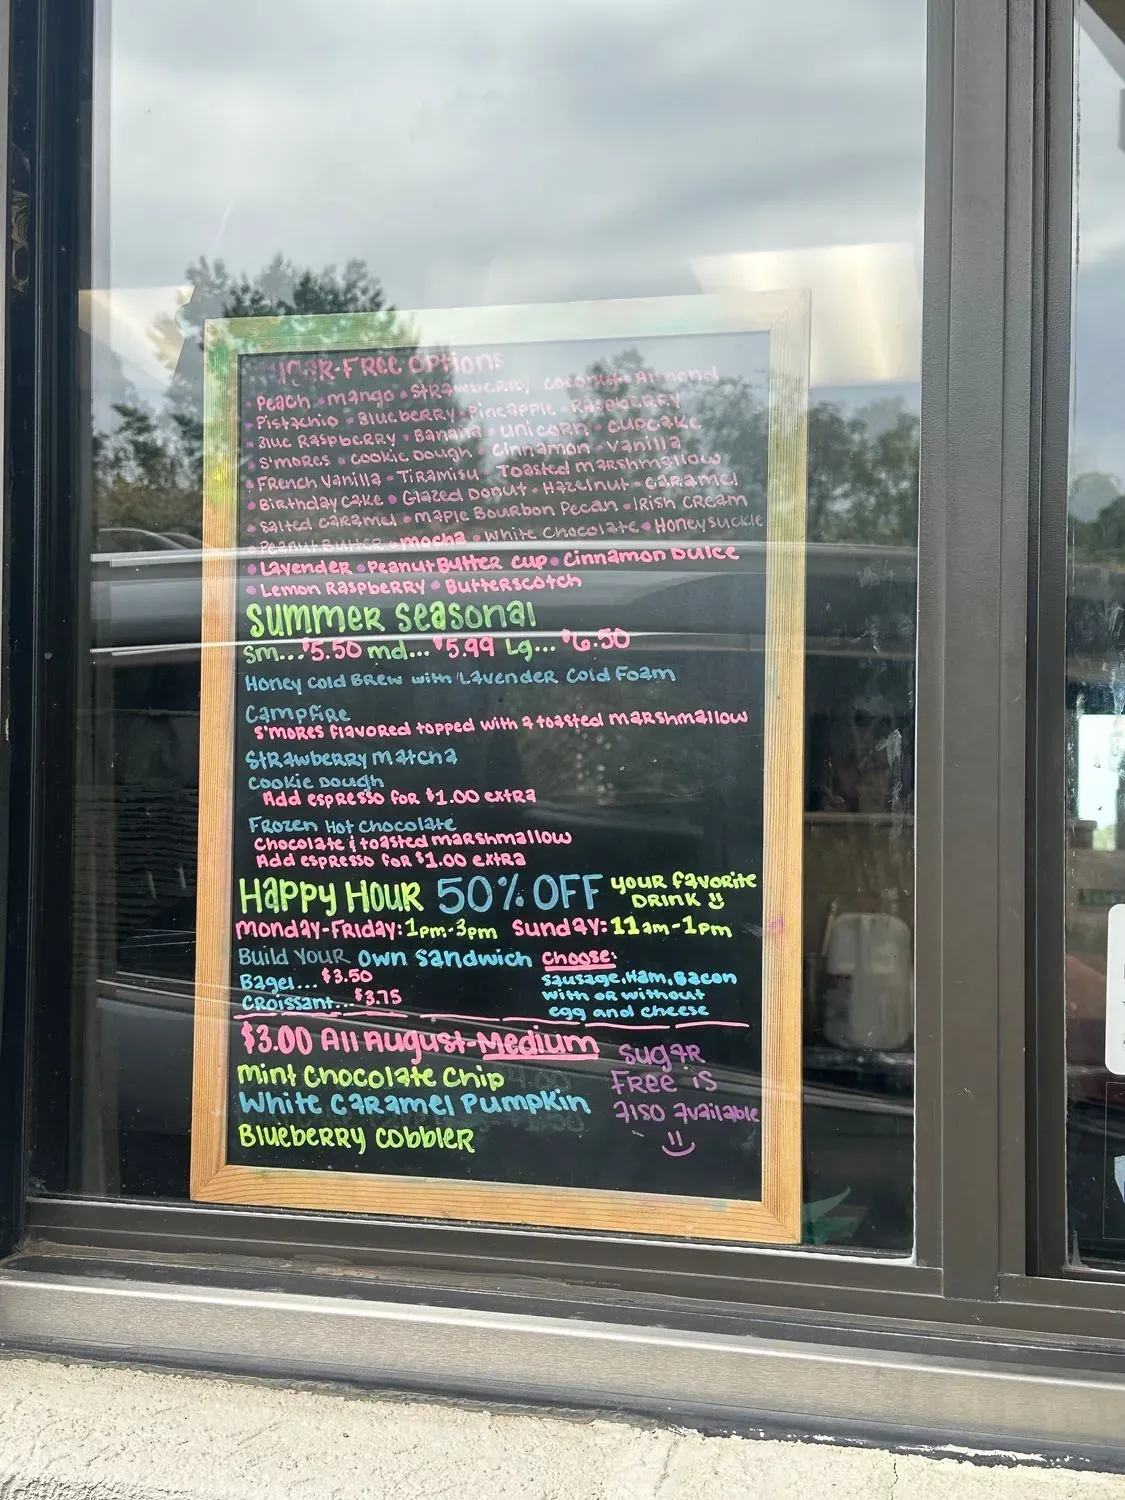 SUGAR-FREE OPTIONS
• Peach • Mango • Strawberry, Coconut • Almond
• Pistachio • Blueberry • Pineapple • Raspberry
• Blue Raspberry • Banana • Unicorn • Cupcake
• S'mores • Cookie Dough • Cinnamon • Vanilla
• French Vanilla • Tiramisu • Toasted Marshmallow
• Birthday Cake • Glazed Donut • Hazelnut • Caramel
• Salted Caramel • Maple Bourbon Pecan • Irish Cream
• Peanut Butter • Mocha • White Chocolate • Honeysuckle
• Lavender • Peanut Butter Cup • Cinnamon Dulce
• Lemon Raspberry • Butterscotch
Summer Seasonal
Sm...$5.50 md...$5.99 Lg...$6.50
Honey Cold Brew with Lavender Cold Foam
Campfire
S'mores flavored topped with a toasted marshmallow
Strawberry Matcha
Cookie Dough
Add espresso for $1.00 extra
Frozen Hot Chocolate
Chocolate & toasted marshmallow
Add espresso for $1.00 extra
Happy Hour 50% OFF your favorite Drink
Monday-Friday: 1pm-3pm Sunday: 11am-1pm
Build Your Own Sandwich Choose:
Bagel...$3.50
Croissant...$3.75
Sausage, Ham, Bacon
with or without
egg and cheese
$3.00 All August-Medium
Mint Chocolate Chip
White Caramel Pumpkin
Blueberry Cobbler
Sugar
Free is
Also Available